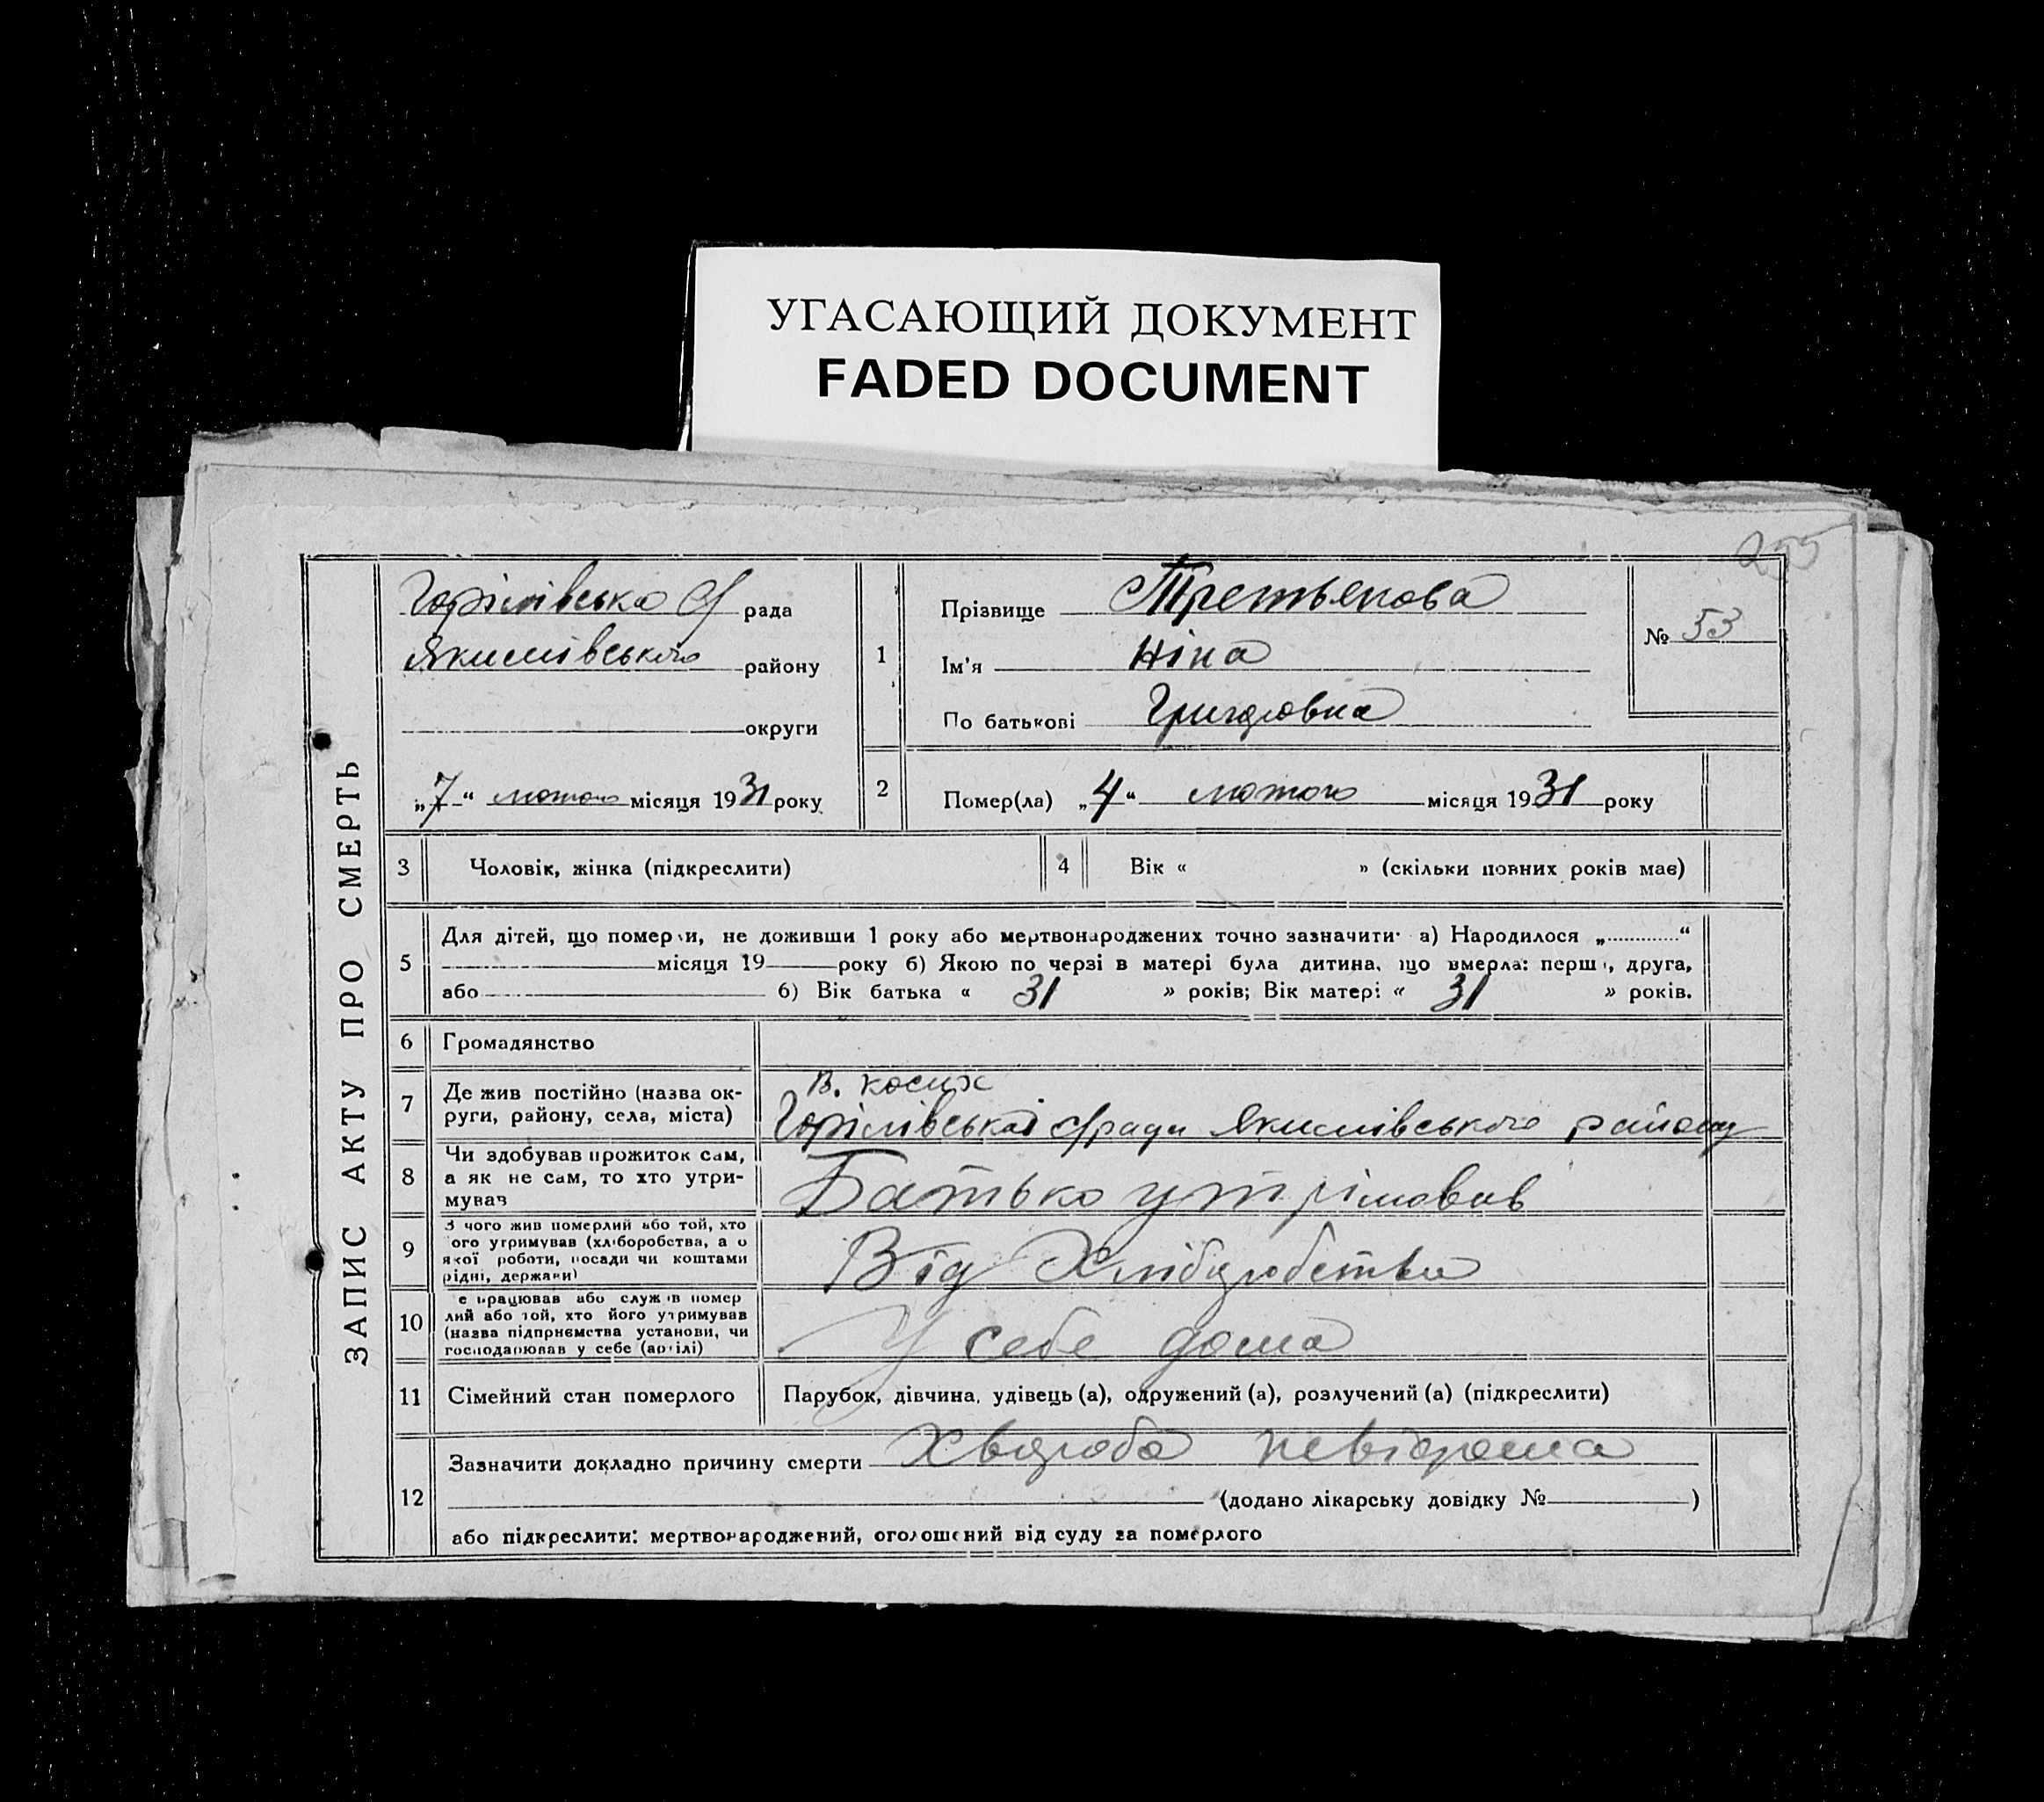 УГАСАЮЩИЙ ДОКУМЕНТ
FADED DOCUMENT
255
ЗАПИС АКТУ ПРО СМЕРТЬ
Горілівська С/рада
Якимівського району
округи
„7“ лютого місяця 1931 року
1
Прізвище Третьякова
Ім'я Ніна
По батькові Григоровна
№ 53
2
Помер(ла) „4“ лютого місяця 1931 року
3 Чоловік, жінка (підкреслити)
4 Вік « » (скільки повних років має)
5
Для дітей, що померли, не доживши 1 року або мертвонароджених точно зазначити: а) Народилося „ “
місяця 19 року б) Якою по черзі в матері була дитина, що вмерла: перша, друга,
або 6) Вік батька « 31 » років; Вік матері « 31 » років.
6 Громадянство
7
Де жив постійно (назва ок-
руги, району, села, міста)
Горілівської с/ради Якимівського району
8
Чи здобував прожиток сам,
а як не сам, то хто утри-
мував
Батько утрімовав
9
З чого жив померлий або той, хто
ого утримував (хліборобства, а о
якої роботи, посади чи коштами
рідні, держави)
Від Хліборобства
10
е працював або служив помер
лий або той, хто його утримував
(назва підприємства установи, чи
господарював у себе (артілі)
У себе дома
11 Сімейний стан померлого
Парубок, дівчина, удівець (а), одружений (а), розлучений (а) (підкреслити)
12
Зазначити докладно причину смерти Хвороба невідома
(додано лікарську довідку № )
або підкреслити: мертвонароджений, оголошений від суду за померлого